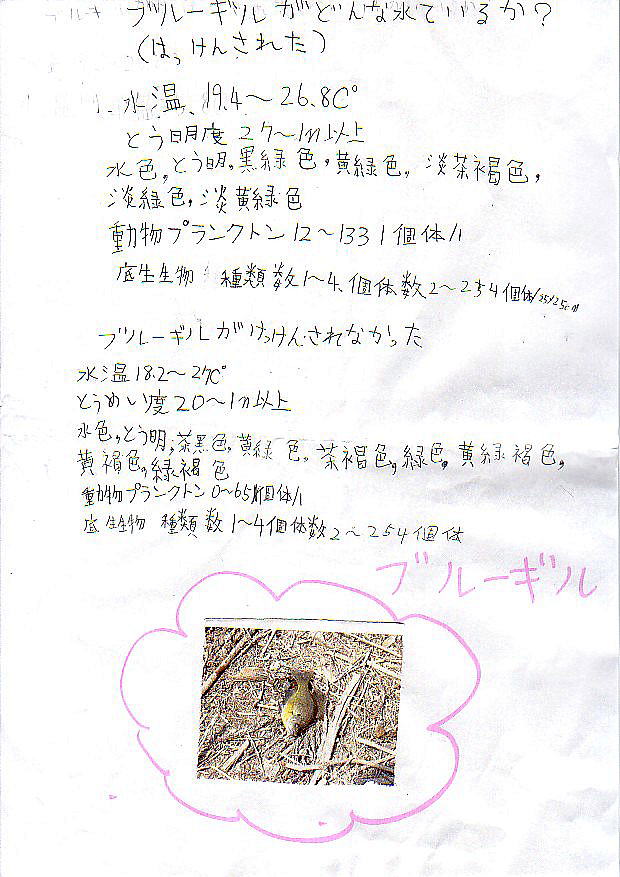 ブルーギルがどんな水ているか?
(はっけんされた)
1. 水温、19.4〜26.8C°
とう明度 27〜1m以上
水色,とう明,黒緑色,黄緑色,淡茶褐色,
淡緑色,淡黄緑色
動物プランクトン12〜1331個体/l
底生生物 種類数1〜4、個体数2〜254個体/25×25cm
ブルーギルがけっけんされなかった
水温18.2〜27C°
とうめい度20〜1m以上
水色,とう明,茶黒色,黄緑色,茶褐色,緑色,黄緑褐色,
黄褐色,緑褐色
動物プランクトン0〜651個体/l
底生生物 種類数1〜4個体数2〜254個体
ブルーギル